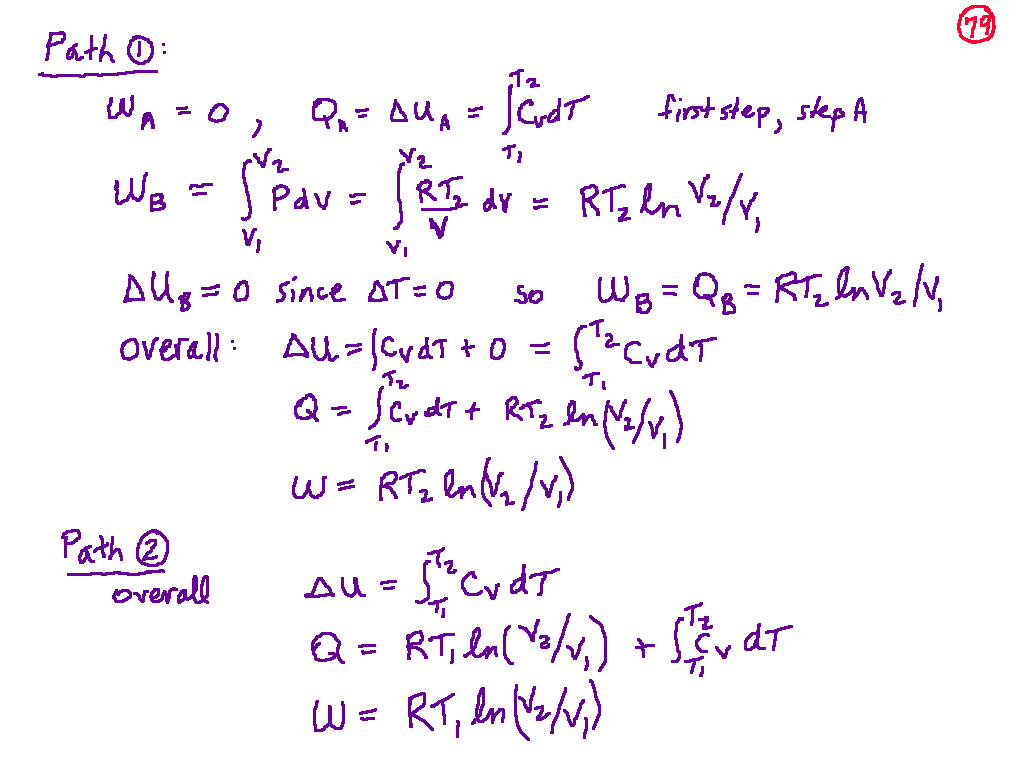 79
Path ①:
W_A = 0, Q_A = ΔU_A = ∫_{T₁}^{T₂} C_v dT first step, step A
W_B = ∫_{V₁}^{V₂} P dV = ∫_{V₁}^{V₂} RT₂/V dV = RT₂ ln V₂/V₁
ΔU_B = 0 since ΔT = 0 so W_B = Q_B = RT₂ ln V₂/V₁
overall: ΔU = ∫C_v dT + 0 = ∫_{T₁}^{T₂} C_v dT
Q = ∫_{T₁}^{T₂} C_v dT + RT₂ ln(V₂/V₁)
W = RT₂ ln(V₂/V₁)
Path ②
overall ΔU = ∫_{T₁}^{T₂} C_v dT
Q = RT₁ ln(V₂/V₁) + ∫_{T₁}^{T₂} C_v dT
W = RT₁ ln(V₂/V₁)